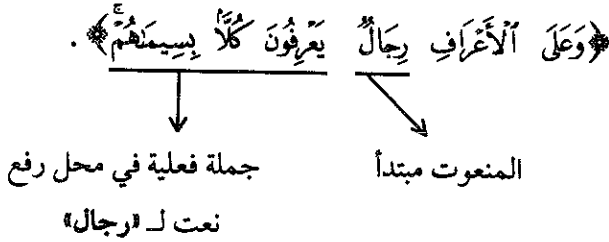 ﴿وَعَلَى ٱلْأَعْرَافِ رِجَالٌ يَعْرِفُونَ كُلًّۢا بِسِيمَىٰهُمْۚ﴾ .
المنعوت مبتدأ
جملة فعلية في محل رفع
نعت لـ «رجال»